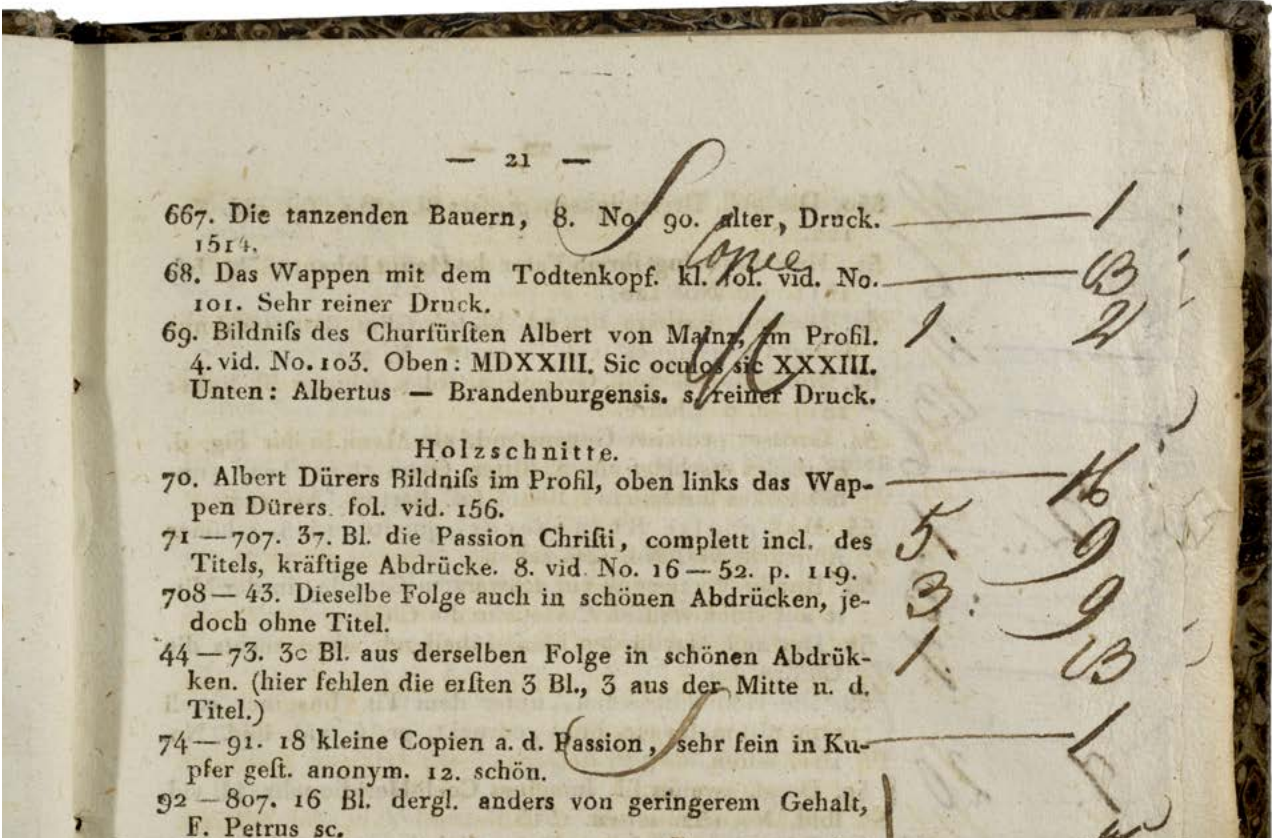 — 21 —
667. Die tanzenden Bauern, 8. No. 90. alter, Druck. — 1
1514.
Copie
68. Das Wappen mit dem Todtenkopf. kl. fol. vid. No. —
101. Sehr reiner Druck.
69. Bildniſs des Churfürſten Albert von Mainz, im Profil. 1. 2
4. vid. No. 103. Oben: MDXXIII. Sic oculos sic XXXIII.
Unten: Albertus — Brandenburgensis. s. reiner Druck.
Holzschnitte.
70. Albert Dürers Bildniſs im Profil, oben links das Wap- — 16
pen Dürers. fol. vid. 156.
71 — 707. 37. Bl. die Passion Chriſti, complett incl. des 5. 9
Titels, kräftige Abdrücke. 8. vid. No. 16 — 52. p. 119.
708 — 43. Dieselbe Folge auch in schönen Abdrücken, je- 3: 9
doch ohne Titel.
44 — 73. 30 Bl. aus derselben Folge in schönen Abdrük- 1.
ken. (hier fehlen die erſten 3 Bl., 3 aus der Mitte u. d.
Titel.)
74 — 91. 18 kleine Copien a. d. Passion, sehr fein in Ku- — 1
pfer geſt. anonym. 12. schön.
92 — 807. 16 Bl. dergl. anders von geringerem Gehalt,
F. Petrus sc.